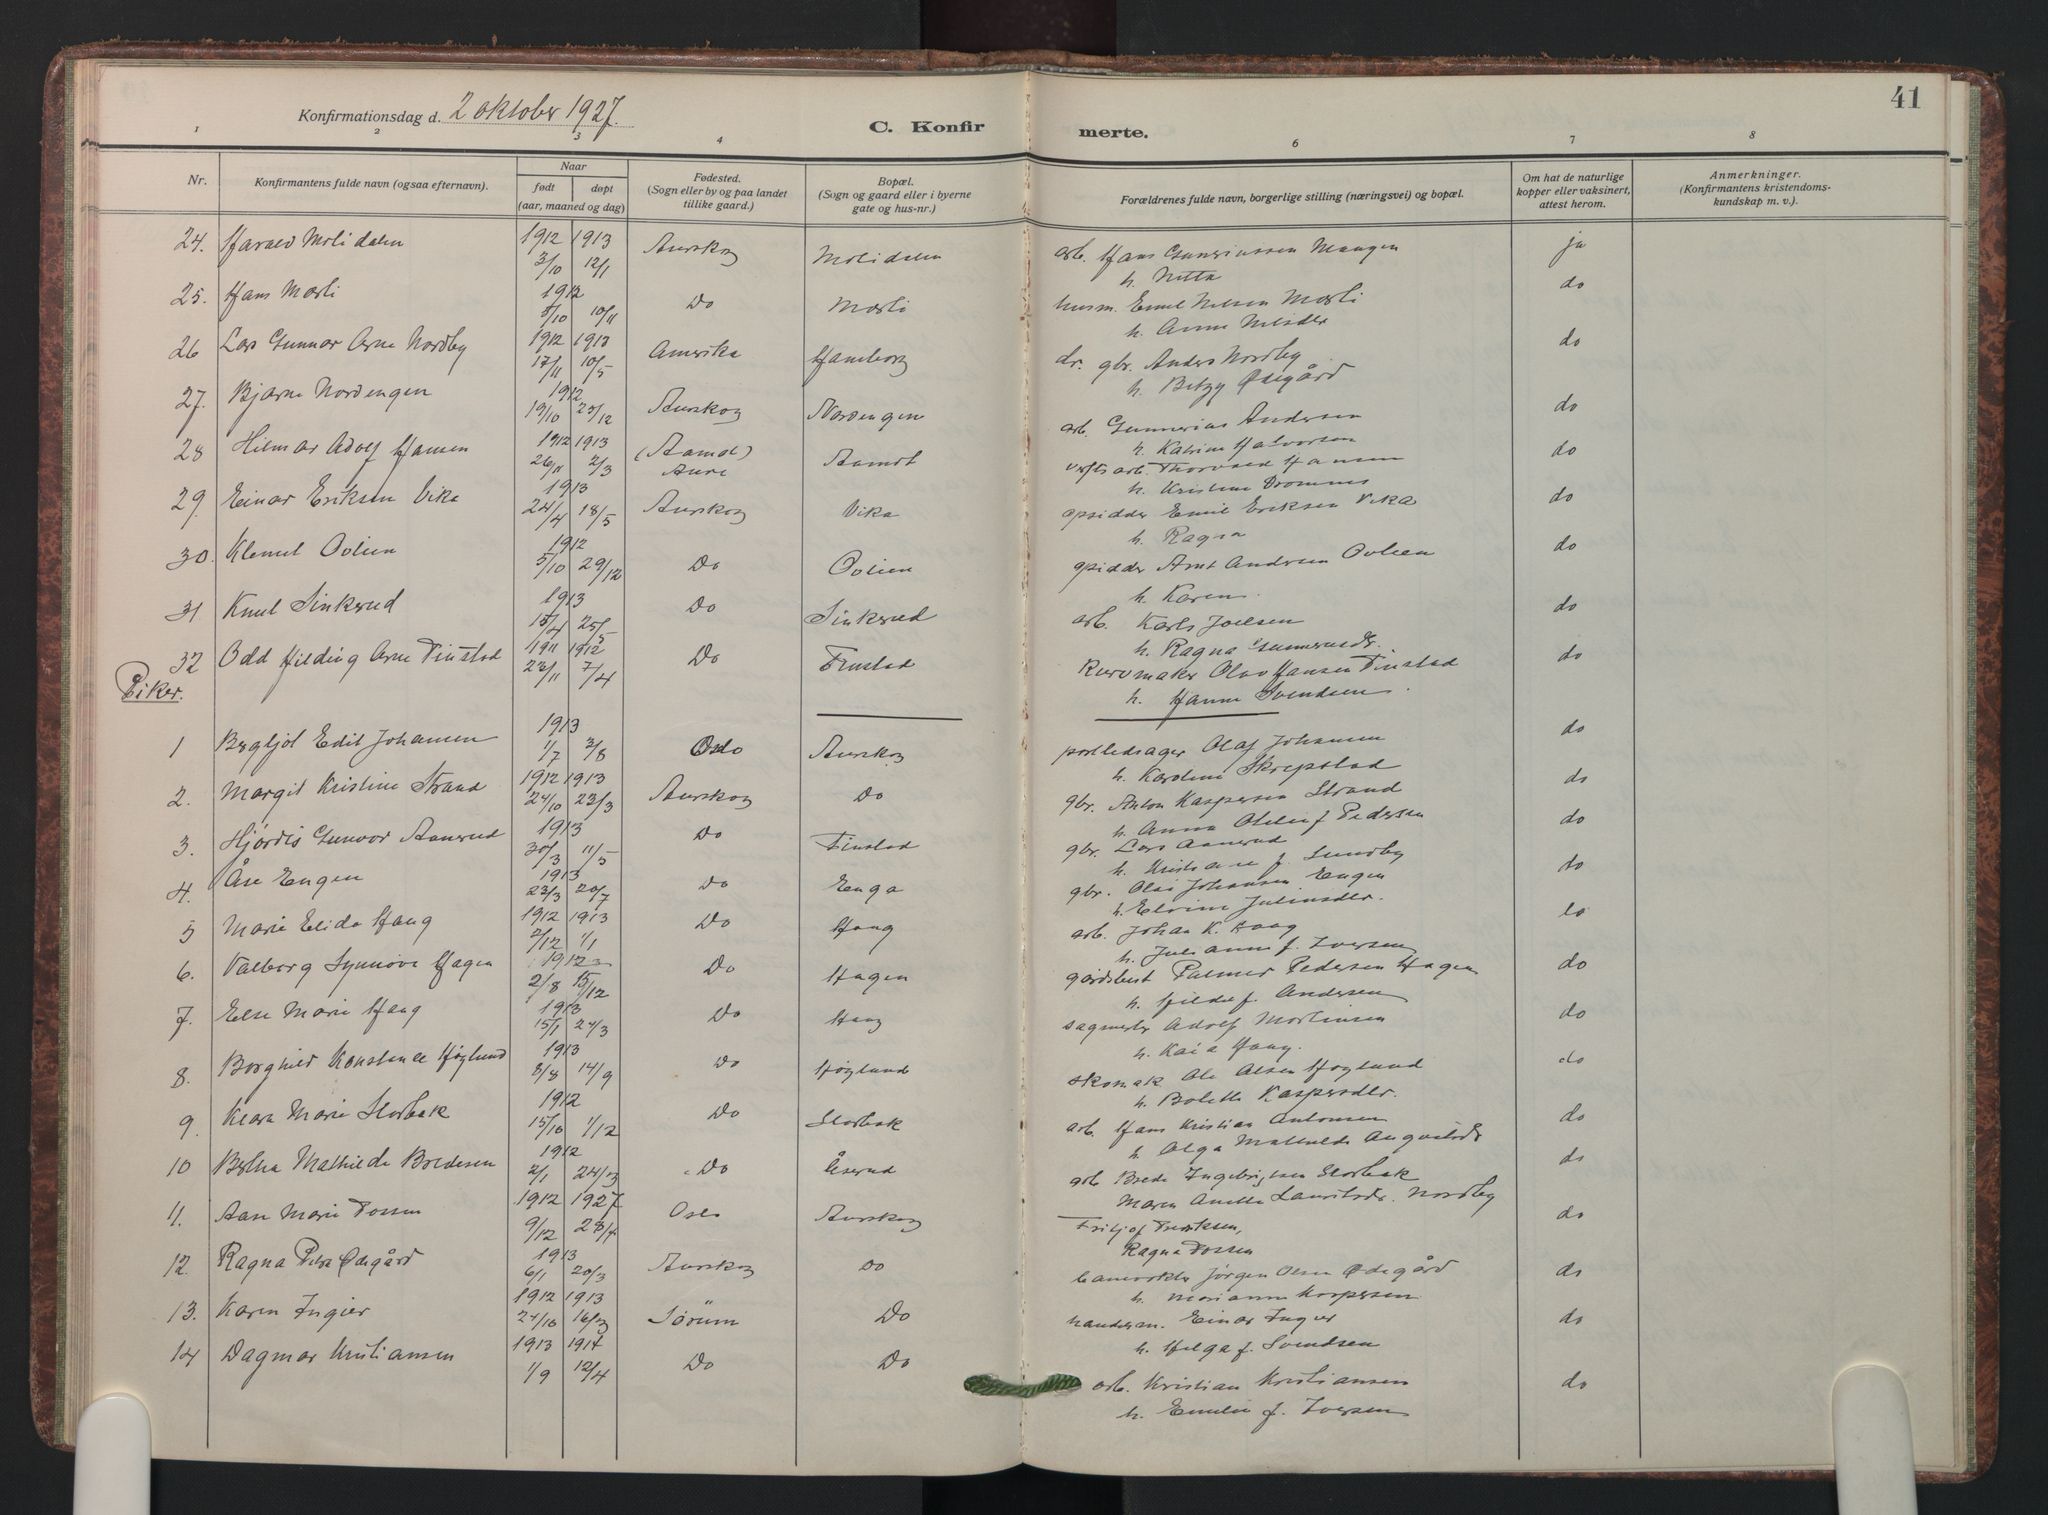 41
Konfirmationsdag d. 2 oktober 1927.
C. Konfirmerte.
1 2 3 4 5 6 7 8
Nr. Konfirmantens fulde navn (ogsaa efternavn). Naar født døpt (aar, maaned og dag) Fødested. (Sogn eller by og paa landet tillike gaard.) Bopæl. (Sogn og gaard eller i byerne gate og hus-nr.) Forældrenes fulde navn, borgerlige stilling (næringsvei) og bopæl. Om hat de naturlige kopper eller vaksinert, attest herom. Anmerkninger. (Konfirmantens kristendomskundskap m. v.).
24. Harald Molidalen 1912 3/10 1913 12/1 Aurskog Molidalen arb. Hans Guneriussen Mangen ja
h. Nitta
25. Hans Mosli 1912 8/10 10/11 Do Mosli husm. Emil Nilsen Mosli do
h. Anne Nilsdtr
26 Lars Gunnar Arne Nordby 1912 17/11 1913 10/5 Amerika Hamborg dr. gbr. Anders Nordby do
h. Betzy Ødegård
27. Bjarne Nordengen 1912 19/10 23/12 Aurskog Nordengen arb. Gunnerius Andersen do
h. Katrine Halvorsen
28 Hilmar Adolf Hansen 1912 26/11 1913 2/3 (Aamot) Aure Aamot arb. Thorvald Hansen do
h. Kristine
29. Einar Eriksen Vika 1913 24/4 18/5 Aurskog Vika opsidder Emil Eriksen Vika do
h. Ragna
30. Klemet Ovlien 1912 5/10 29/12 Do Ovlien opsidder Arnt Andersen Ovlien do
h. Karen
31 Knut Sinkerud 1913 15/4 25/5 Do Sinkerud arb. Karls Joelsen do
h. Ragna Gunnerusdr.
32 Odd Hilding Arne Finstad 1911 23/11 1912 7/4 Do Finstad Kurvmaker Olav Hansen Finstad do
h. Hanna Svendsen.
Piker.
1 Bergljot Edit Johansen 1913 1/7 3/8 Oslo Aurskog postledsager Olaf Johansen do
h. Karoline Skrepstad
2. Margit Kristine Strand 1912 24/10 1913 23/3 Aurskog Do gbr. Anton Kaspersen Strand do
h. Anna Otelie f. Pedersen
3. Hjördis Gunvor Aanerud 1913 30/3 11/5 Do Finstad gbr. Lars Aanerud do
h. Kristiane f. Sundby
4. Åse Engen 1913 23/3 20/7 Do Enga gbr. Olai Johansen Engen do
h. Elvine Juliusdtr.
5 Marie Elida Haug 1912 2/12 1913 1/1 Do Haug arb. Johan K. Haag do
h. Julianne f. Iversen
6. Valborg Synnøve Hagen 1912 2/8 15/12 Do Hagen gårdsbest Palmer Pedersen Hagen do
h. Hilda f. Andersen
7. Else Marie Haug 1913 15/1 24/3 Do Haug Adolf Martinsen do
h. Kaia Haug.
8. Borghild Konstance Høglund 1913 8/8 14/9 Do Høglund skomak Ole Olsen Høglund do
h. Bolette Kaspersdtr.
9. Klara Marie Storbak 1912 15/10 1/12 Do Storbak arb. Hans Kristian Antonsen do
h. Olga Mathilde
10 Berta Mathilde Bredesen 1912 2/1 24/3 Do Åserud arb Brede Ingebrigtsen Storbak do
Maren Anette Lauritsdr. Nordby
11. Aase Marie Fossen 1912 9/12 1927 28/4 Oslo Aurskog Fritjof Fredriksen, do
Ragna Fossen
12. Ragna Petra Ødegård 1913 6/1 20/3 Aurskog do Jørgen Olsen Ødegård do
h. Marianne Kaspersen
13. Karen Ingier 1912 24/10 1913 16/3 Sörum Do handelsm. Einar Ingier do
h. Helga f. Svendsen
14 Dagmar Kristiansen 1913 1/9 1914 12/4 Do Do arb. Kristian Kristiansen do
h. Emilie f. Iversen